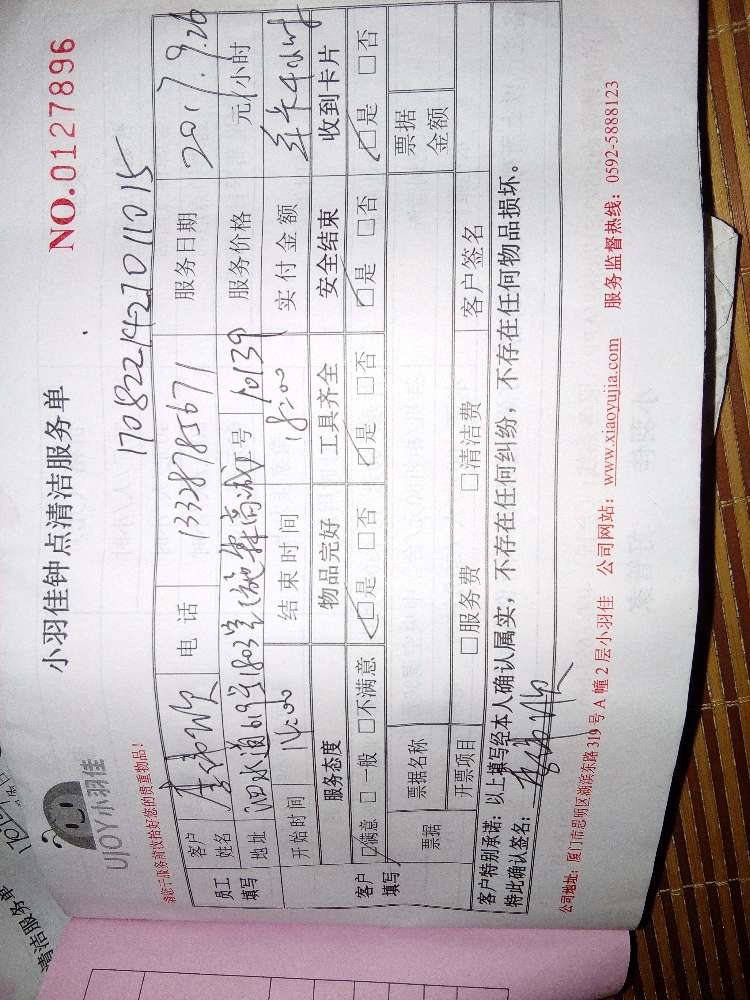 小羽佳钟点清洁服务单
NO.0127896
UJOY小羽佳
170822142701 1015
请您于服务前收拾好您的贵重物品!
员工填写
客户姓名
电话 13328785671
服务日期 2017.9.26
地址
工号 10139
服务价格 元/小时
开始时间 14:00 结束时间 18:00 实付金额
客户填写
服务态度 物品完好 工具齐全 安全结束 收到卡片
☑满意 □一般 □不满意 ☑是 □否 ☑是 □否 ☑是 □否 ☑是 □否
票据 票据名称 票据金额
开票项目 □服务费 □清洁费 客户签名
客户特别承诺：以上填写经本人确认属实，不存在任何纠纷，不存在任何物品损坏。
特此确认签名：
公司地址：厦门市思明区湖滨东路319号A幢2层小羽佳 公司网站：www.xiaoyujia.com 服务监督热线：0592-5888123
清洁服务单